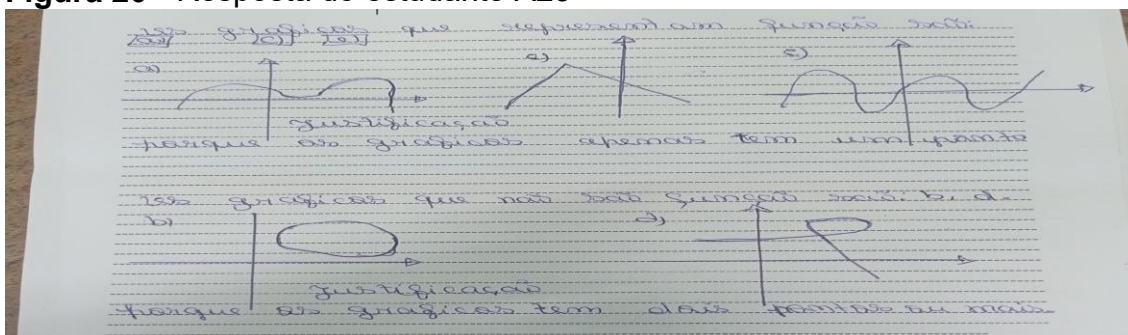 Figura 20 - Resposta do estudante A20
Os gráficos que representam função são:
[a] [c] [e]
a) e) c)
Justificação
porque os gráficos apenas tem um ponto
Os gráficos que não são função são: b, d.
b) d)
Justificação
porque os gráficos tem dois pontos ou mais.